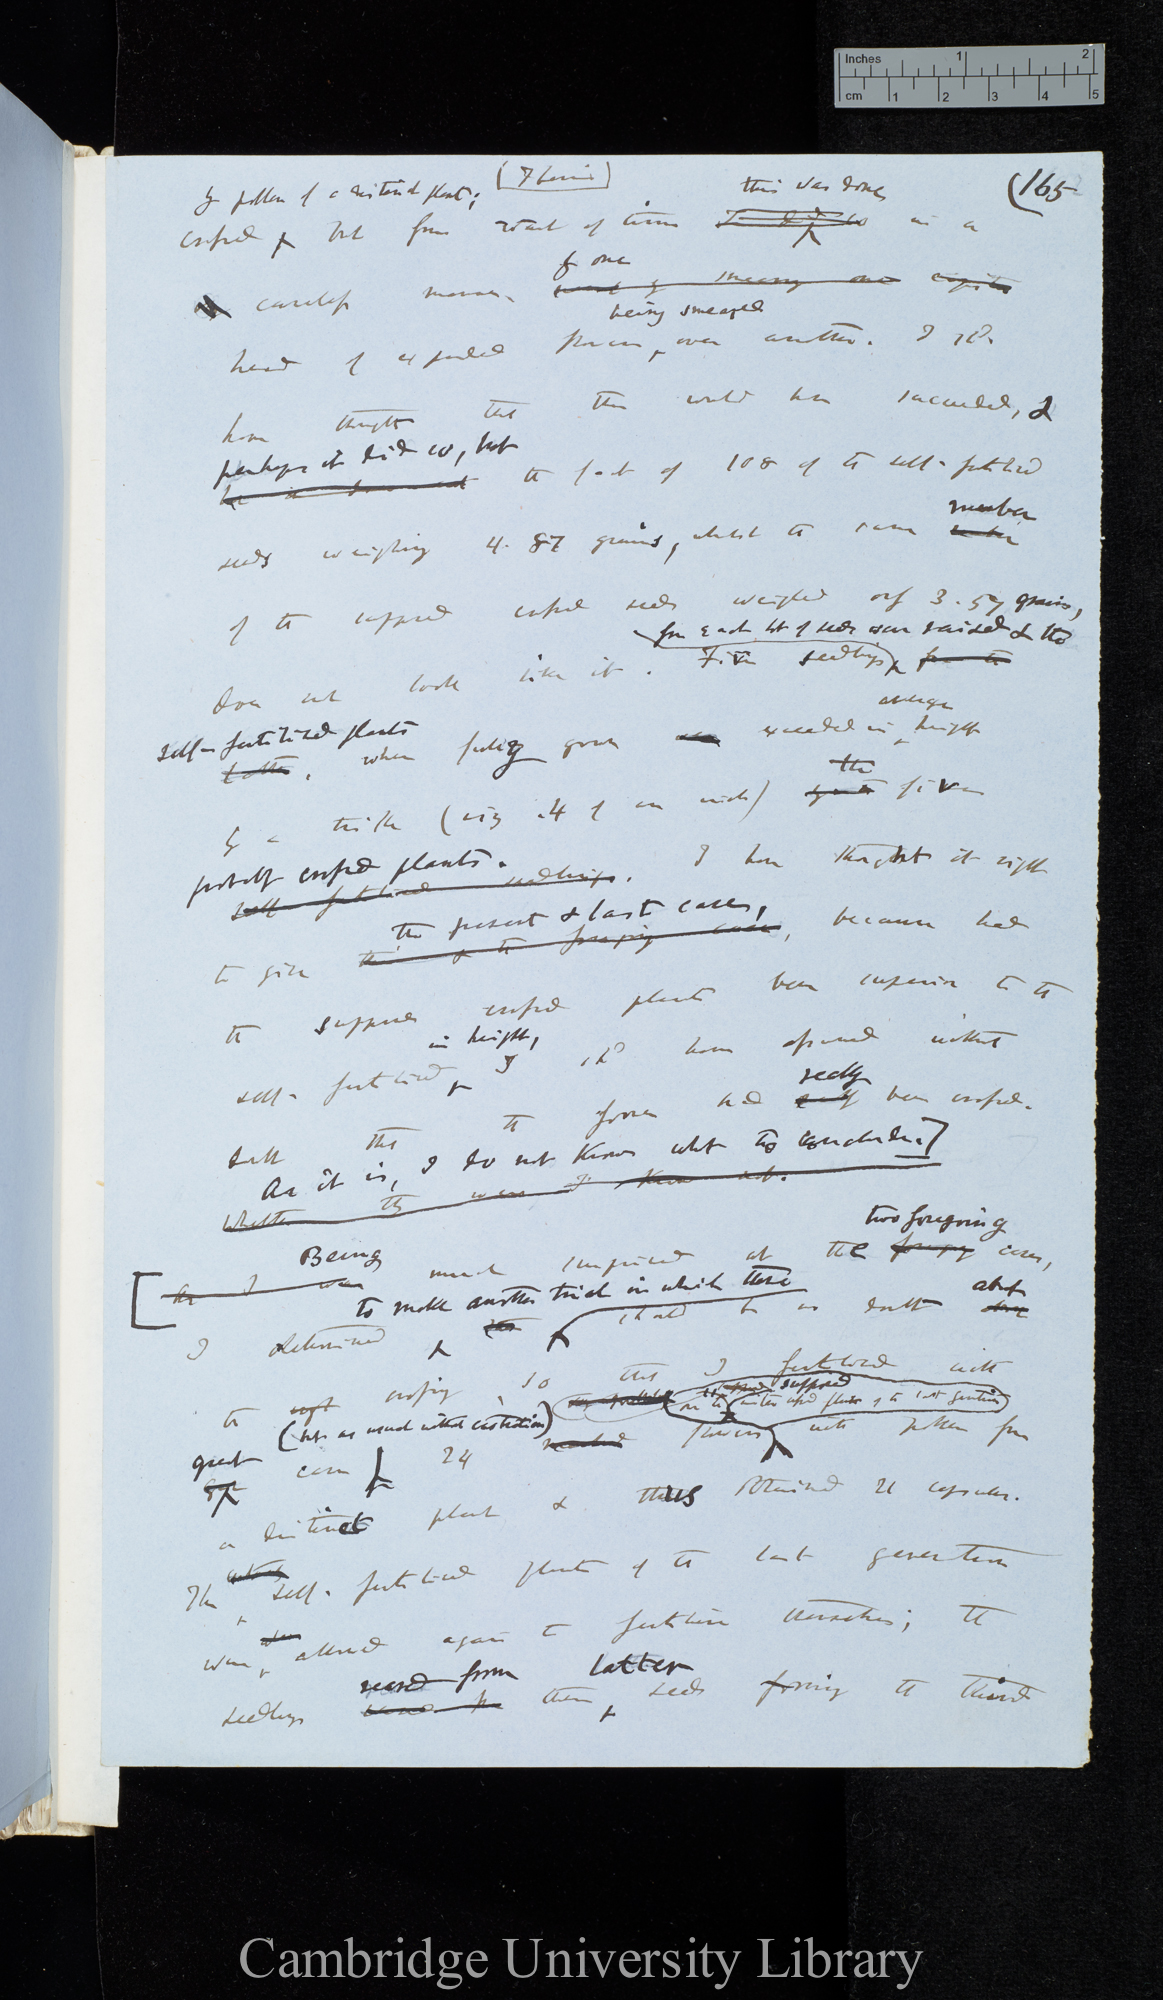 Inches 1 2
cm 1 2 3 4 5
(165
by pollen of a distinct plant;
this was done
crossed but from want of time in a
of one
careless manner,
being smeared
head of expanded flowers over another. I shd.
have thought that this would have succeeded, &
perhaps it did so, but
the fact of 108 of the self-fertilised
number
seeds weighing 4.87 grains, whilst the same
of the supposed crossed seeds weighed only 3.57 grains,
from each lot of seeds were raised & the
does not look like it. Five seedlings from the
average
self-fertilised plants
when fully grown exceeded in height
the
by a trifle (viz .4 of an inch) five
probably crossed plants.
self-fertilised seedlings. I have thought it right
the present & last cases,
to give because had
the supposed crossed plants been superior to the
in height,
self-fertilised, I shd have assumed without
really
doubt that the former had been crossed.
As it is, I do not know what to conclude.]
whether they were I know not.
two foregoing
Being
[As I was much surprised at the cases,
to make another trial in which there
about
I determined should be no doubt
the crossing; so that I fertilised with
supposed
(but as usual without castration)
great
care 24 flowers with pollen from
a distinct plant & thus obtained 21 capsules.
The self-fertilised plants of the last generation
were allowed again to fertilise themselves; the
reared from latter
seedlings them, seeds forming the third
Cambridge University Library